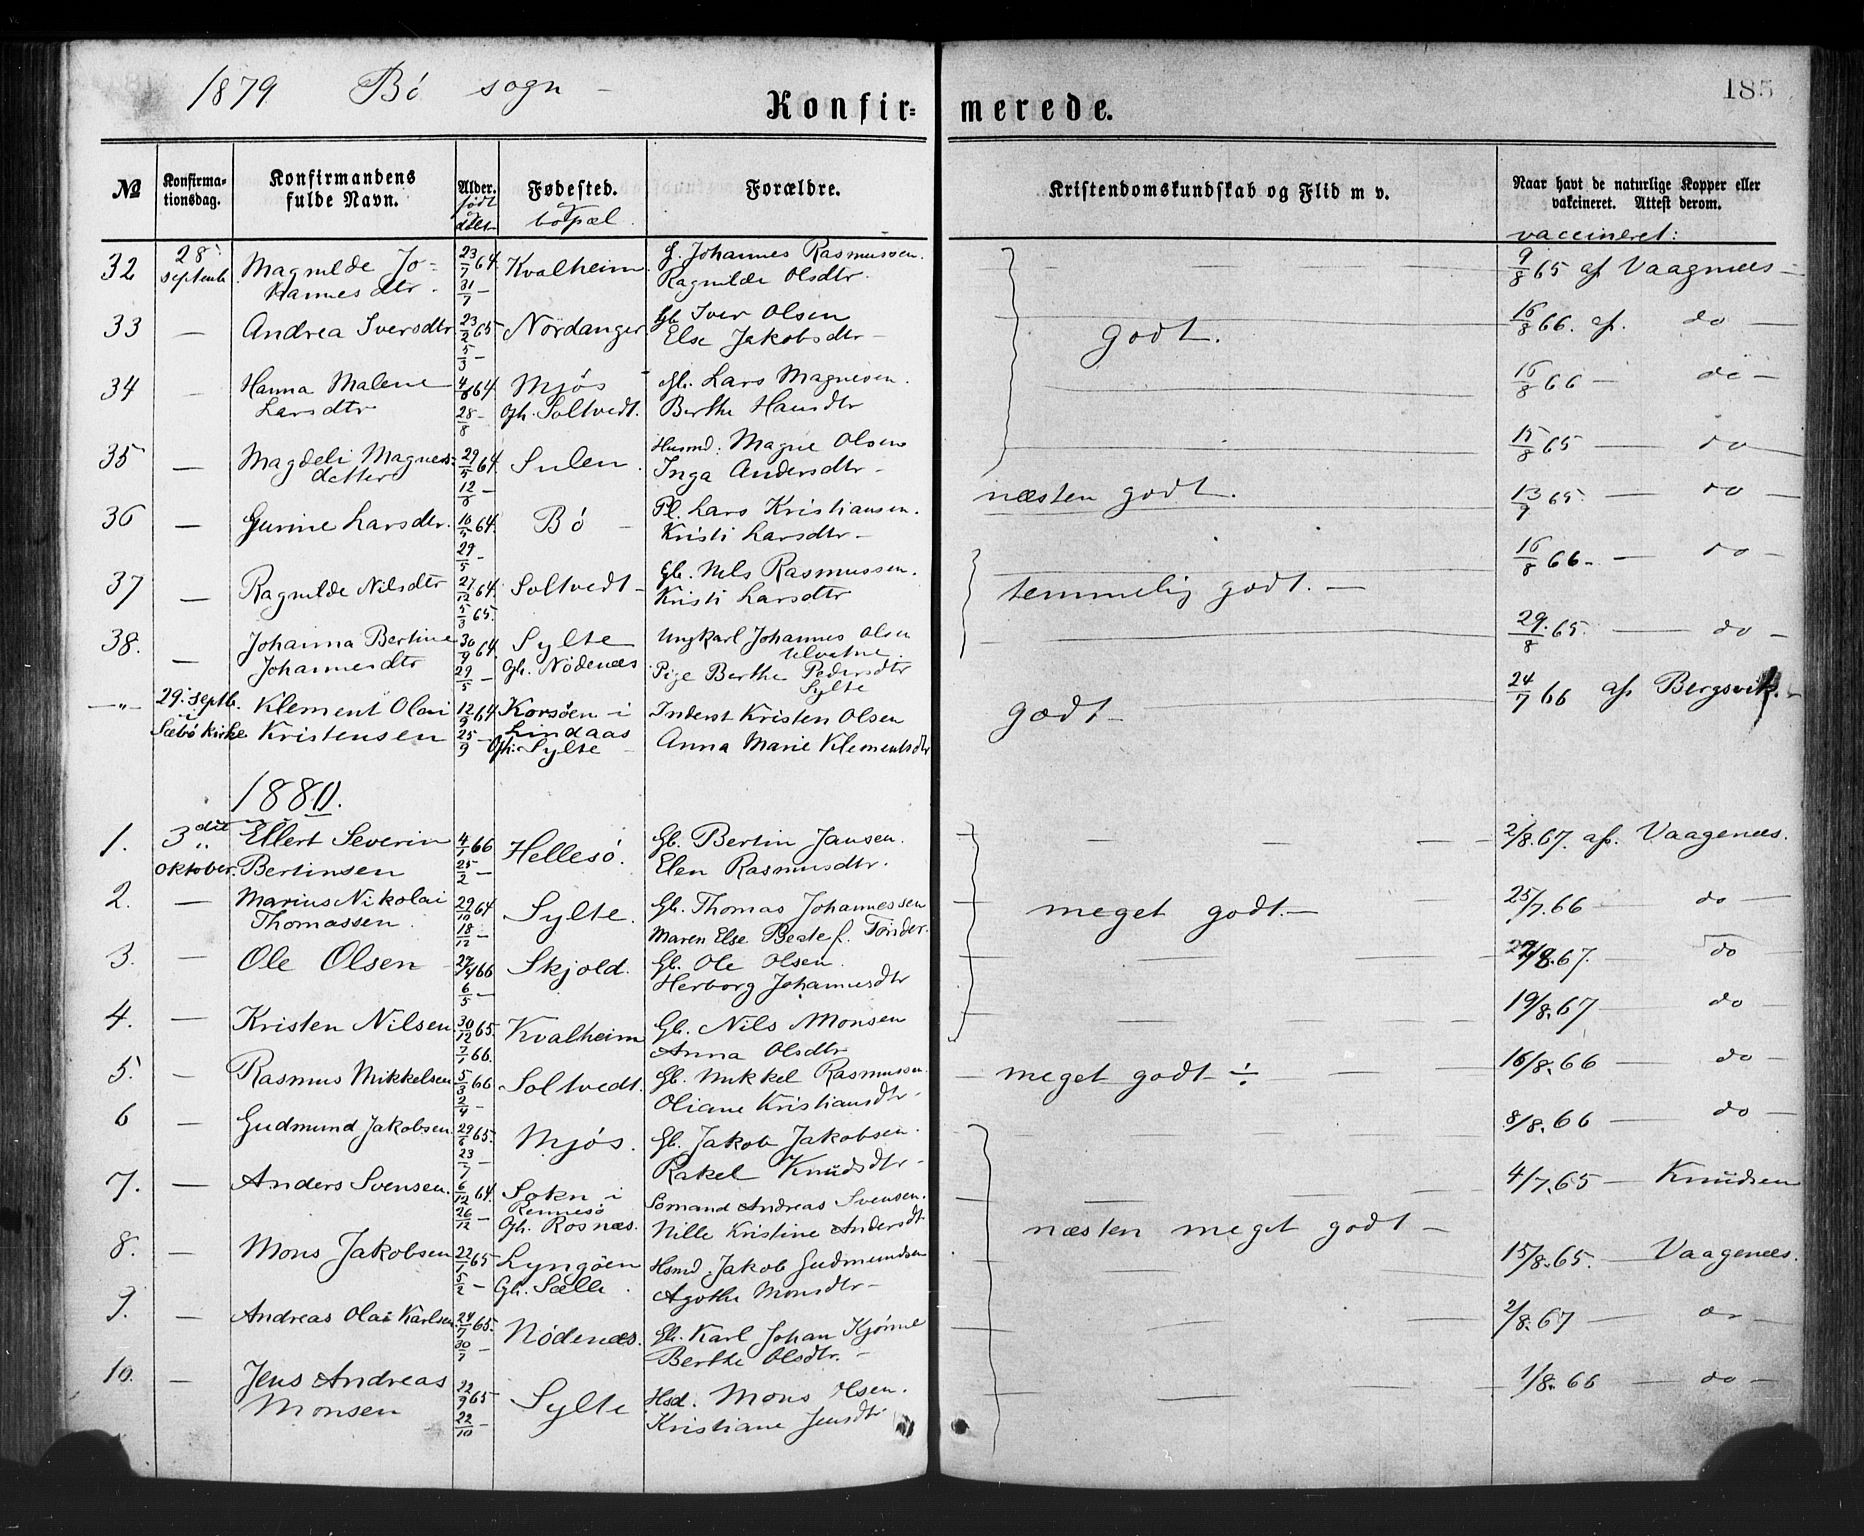 1879 Bö sogn -
185
Konfir= merede.
№ Konfirma-tionsdag. Konfirmandens fulde Navn. Alder. født døbt Fødested. bopæl Forældre. Kristendomskundskab og Flid m v. Naar havt de naturlige Kopper eller vakcineret. Attest derom.
vaccineret:
32 28 septemb. Magnilde Jo= 23/7 64. Kvalheim. G. Johannes Rasmussen. 9/8 65 af Vaagnæs -
hannesdtr. 31/7 - Ragnilde Olsdtr.
33 - Andrea Iversdtr 23/2 65 Nordanger Gb. Iver Olsen godt. 16/8 66. af. do -
5/3 - Else Jakobsdtr -
34 - Hanna Malene 4/8 64. Mjös - Gb. Lars Magnesen. 16/8 66 - do -
Larsdtr 28/8 - Oph. Soltvedt. Berthe Hansdtr
35 - Magdeli Magnes= 29/5 64. Sulen. Husmd. Magne Olsen 15/8 65 - do -
detter 12/6 - Inga Andersdtr -
36 - Gurine Larsdtr. 16/5 64. Bö - Pl. Lars Kristiansen. næsten godt. 13/9 65. - do -
29/5 - Kristi Larsdtr -
37 - Ragnilde Nilsdtr 27/12 64. Soltvedt - Gb. Nels Rasmussen. temmelig godt. - 16/8 66. - do -
5/3 65. Kristi Larsdtr
38. - Johanna Bertine 30/4 64. Sylte Ungkarl Johannes Olsen 29/8 65. - do -
Ulvatne.
Johannesdtr 29/5 - Oph. Nödenæs Pige Berthe Pedersdtr
Sylte
-"- 29. septb. Klement Olai 12/9 64 Korsöen i Inderst Kristen Olsen godt - 24/7 66 af Bergsvik. -
i Sæbö Kirke Kristensen 25/9 - Lindaas
Oph. Sylte - Anna Marie Klementsdtr
1880.
1. 3die Ellert Severin 4/1 66 Hellesö. Gb. Bertin Jansen. 2/8. 67. af. Vaagenæs.
oktober. Bertinsen 25/2 - Elen Rasmusdtr.
2. - Marius Nikolai 29/10 64 Sylte. Gb. Thomas Johannessen meget godt. - 25/7. 66 - do -
Thomassen. 18/12 - Maren Else Beate f. Tönder.
3. - Ole Olsen 27/4 66 Skjold. Gb. Ole Olsen. 27/8. 67. - do
6/5 - Herborg Johannesdtr
4. - Kristen Nilsen 30/12 65. Kvalheim Gb. Nils Monsen 19/8. 67 - do -
7/1 66. Anna Olsdtr
5. - Rasmus Mikkelsen 5/3 66 Soltvedt. Gb. Mikkel Rasmussen. meget godt ÷ 16/8. 66 - do -
2/4 - Oliane Kristiansdtr -
6 - Gudmund Jakobsen. 29/6 65. Mjös. Gb. Jakob Jakobsen. 8/8. 66 - do -
23/7 - Rakel Knudsdtr -
7. - Anders Svensen. 6/12 64. Sokn i Sömand Andreas Svensen. næsten meget godt - 4/7. 65 - Knudsen
Rennesö
26/12 - Oph. Rosnæs. Nille Kristine Andersdtr
8. - Mons Jakobsen 22/1 65 Lyngöen Hsmd. Jakob Gudmundsen 15/8. 65. - Vaagenæs.
5/2 - Oph. Sælle. Agothe Monsdtr -
9. - Andreas Olai Karlsen. 24/7 65. Nödenæs. Gb. Karl Johan Kjönne 2/8. 67 - do -
30/7 - Berthe Olsdtr. -
10. - Jens Andreas 22/9 65 Sylte Hsd. Mons Olsen. 1/8. 66 - do -
Monsen 22/10 - Kristiane Jensdtr